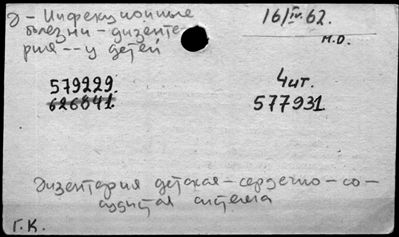 Д – Инфекционные
болезни – дизенте-
рия -- у детей
16/IV.62.
М.О.
579229.
626841.
4 шт.
577931.
Дизентерия детская – сердечно – со-
судистая система
Г.К.